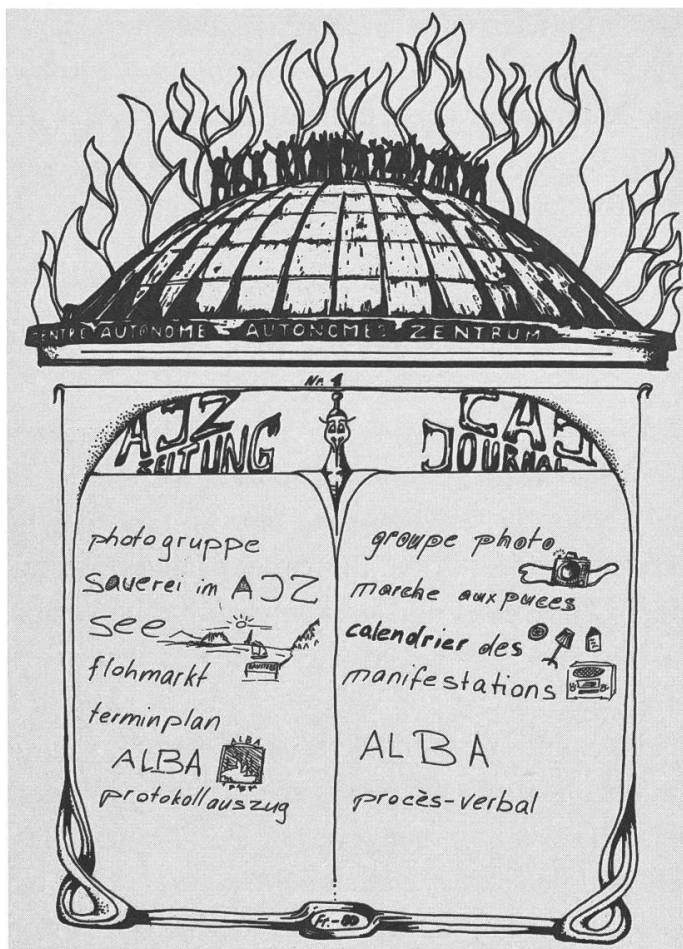 CENTRE AUTONOME - AUTONOMES ZENTRUM
Nr. 1
AJZ
ZEITUNG
CAJ
JOURNAL
photogruppe
Sauerei im AJZ
See
flohmarkt
terminplan
ALBA
ALBA
protokollauszug
groupe photo
marche aux puces
calendrier des
manifestations
ALBA
procès-verbal
Fr.-80